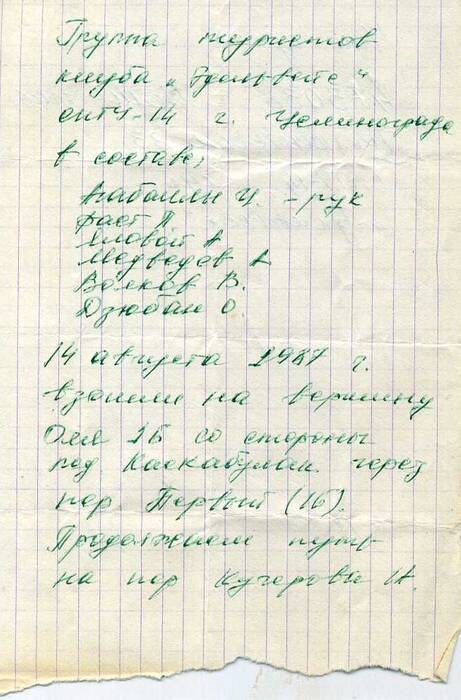 Группа туристов
клуба „Эдельвейс“
СПТУ-14 г. Целинограда
в составе:
Агабаллы Ч. - рук
Фаст П
Яловой А
Медведев А
Волков В.
Дзюбан О.
14 августа 1987 г.
взошли на вершину
1Б со стороны
через
пер Первый (1Б).
Продолжаем путь
на пер Кучерова Н.